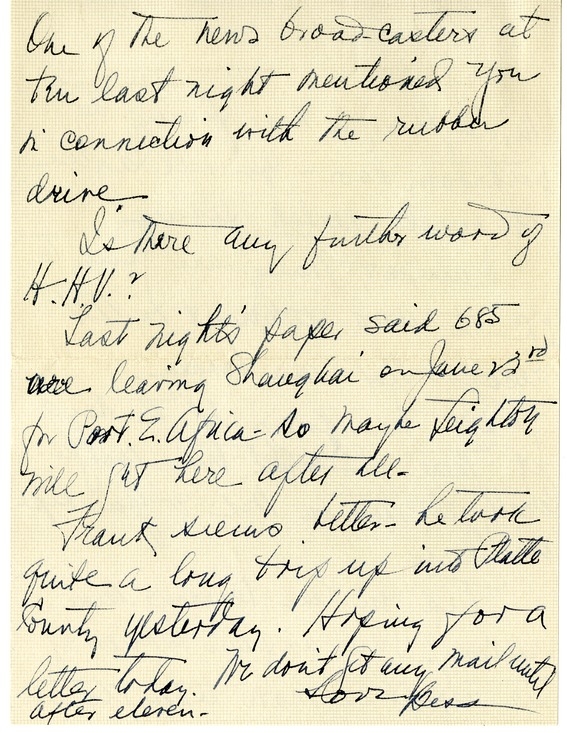 One of the news broad-casters at
ten last night mentioned you
in connection with the rubber
drive.
Is there any further word of
H.H.V.?
Last night's paper said 685
are leaving Shanghai on June 23rd
for Port. E. Africa - so maybe Leighton
will get here after all -
Frank seems better - he took
quite a long trip up into Platte
County yesterday. Hoping for a
letter today. We don't get any mail until
after eleven -
Love Bess